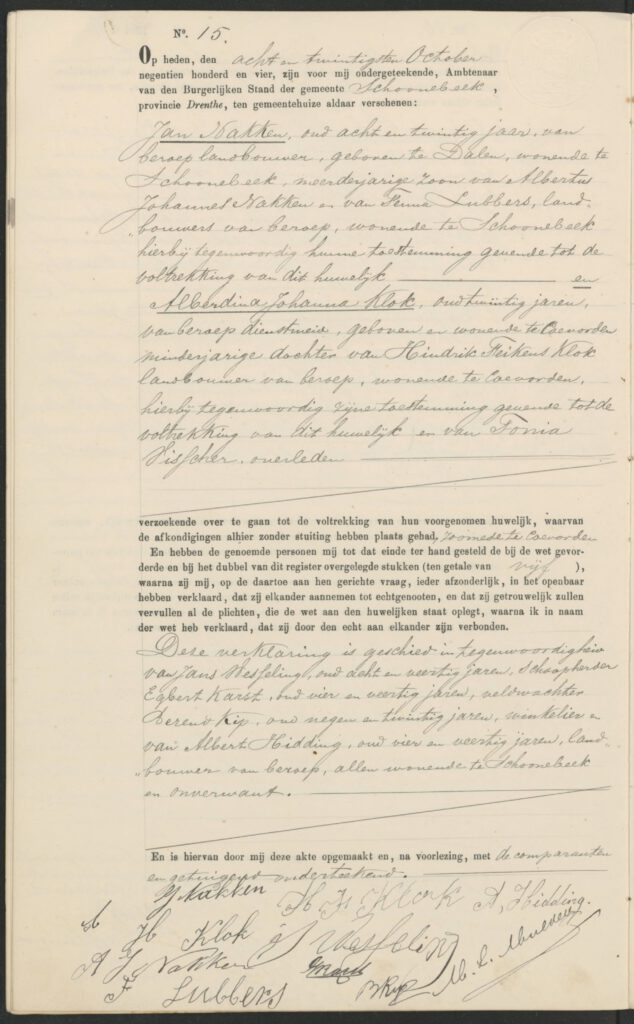 No. 15.
Op heden, den acht en twintigsten October
negentien honderd en vier, zijn voor mij ondergeteekende, Ambtenaar
van den Burgerlijken Stand der gemeente Schoonebeek,
provincie Drenthe, ten gemeentehuize aldaar verschenen:
Jan Nakken, oud acht en twintig jaar, van
beroep landbouwer, geboren te Dalen, wonende te
Schoonebeek, meerderjarige zoon van Albertus
Johannes Nakken en van Fenna Lubbers, land-
bouwers van beroep, wonende te Schoonebeek
hierbij tegenwoordig hunne toestemming gevende tot de
voltrekking van dit huwelijk en
Alberdina Johanna Klok, oud twintig jaren,
van beroep dienstmeid, geboren en wonende te Coevorden
minderjarige dochter van Hindrik Feikens Klok
landbouwer van beroep, wonende te Coevorden,
hierbij tegenwoordig zijne toestemming gevende tot de
voltrekking van dit huwelijk en van Tonia
Visscher, overleden
verzoekende over te gaan tot de voltrekking van hun voorgenomen huwelijk, waarvan
de afkondigingen alhier zonder stuiting hebben plaats gehad, zoomede te Coevorden
En hebben de genoemde personen mij tot dat einde ter hand gesteld de bij de wet gevor-
derde en bij het dubbel van dit register overgelegde stukken (ten getale van vijf ),
waarna zij mij, op de daartoe aan hen gerichte vraag, ieder afzonderlijk, in het openbaar
hebben verklaard, dat zij elkander aannemen tot echtgenooten, en dat zij getrouwelijk zullen
vervullen al de plichten, die de wet aan den huwelijken staat oplegt, waarna ik in naam
der wet heb verklaard, dat zij door den echt aan elkander zijn verbonden.
Deze verklaring is geschied in tegenwoordigheid
van Jans Wesseling, oud acht en veertig jaren, Schaapherder
Egbert Karst, oud vier en veertig jaren, veldwachter
Berend Kip, oud negen en twintig jaren, winkelier en
van Albert Hidding, oud vier en veertig jaren, land-
bouwer van beroep, allen wonende te Schoonebeek
en onverwant.
En is hiervan door mij deze akte opgemaakt en, na voorlezing, met de comparanten
en getuigen onderteekend.
J Nakken H. F. Klok A, Hidding.
A J H Klok J Wesseling
A J Nakken BKip
F Lubbers